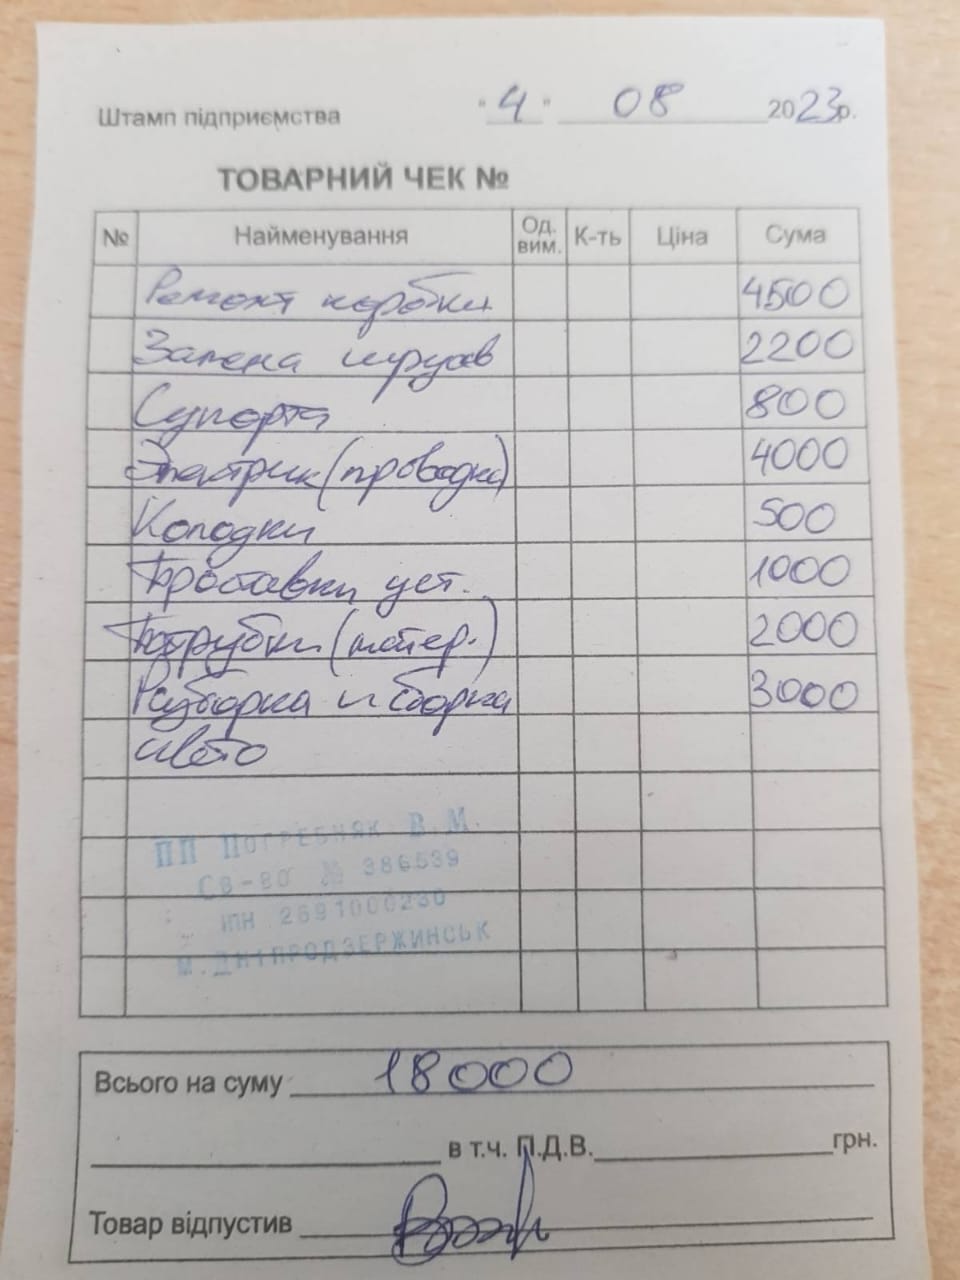 Штамп підприємства "4" 08 2023р.
ТОВАРНИЙ ЧЕК №
№ Найменування Од. вим. К-ть Ціна Сума
Ремонт коробки 4500
Замена шрусов 2200
Супорта 800
Электрик (проводка) 4000
Колодки 500
Проставки уст. 1000
Патрубки (матер.) 2000
Разборка и сборка 3000
авто
ПП Погребняк В.М.
Св-во № 386539
ІПН 2691000230
м.Дніпродзержинськ
Всього на суму 18000
в т.ч. П.Д.В. грн.
Товар відпустив